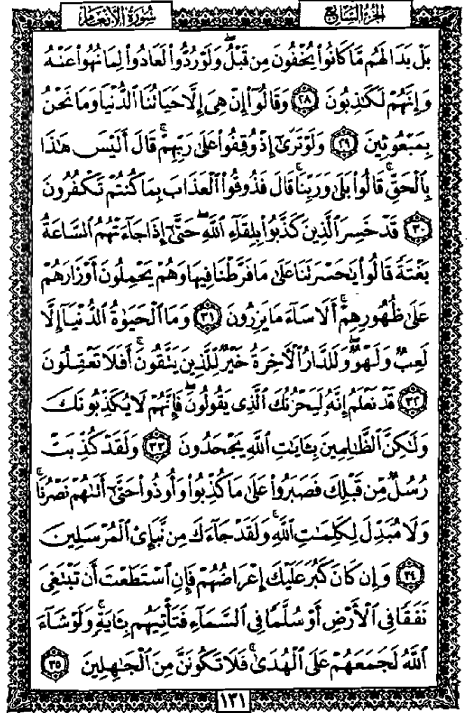 سُورَةُ الأَنعَام
الجزء السابع
بَلْ بَدَا لَهُم مَّا كَانُوا۟ يُخْفُونَ مِن قَبْلُ ۖ وَلَوْ رُدُّوا۟ لَعَادُوا۟ لِمَا نُهُوا۟ عَنْهُ
وَإِنَّهُمْ لَكَـٰذِبُونَ ٢٨ وَقَالُوٓا۟ إِنْ هِىَ إِلَّا حَيَاتُنَا ٱلدُّنْيَا وَمَا نَحْنُ
بِمَبْعُوثِينَ ٢٩ وَلَوْ تَرَىٰٓ إِذْ وُقِفُوا۟ عَلَىٰ رَبِّهِمْ ۚ قَالَ أَلَيْسَ هَـٰذَا
بِٱلْحَقِّ ۚ قَالُوا۟ بَلَىٰ وَرَبِّنَا ۚ قَالَ فَذُوقُوا۟ ٱلْعَذَابَ بِمَا كُنتُمْ تَكْفُرُونَ
٣٠ قَدْ خَسِرَ ٱلَّذِينَ كَذَّبُوا۟ بِلِقَآءِ ٱللَّهِ ۖ حَتَّىٰٓ إِذَا جَآءَتْهُمُ ٱلسَّاعَةُ
بَغْتَةً قَالُوا۟ يَـٰحَسْرَتَنَا عَلَىٰ مَا فَرَّطْنَا فِيهَا وَهُمْ يَحْمِلُونَ أَوْزَارَهُمْ
عَلَىٰ ظُهُورِهِمْ ۚ أَلَا سَآءَ مَا يَزِرُونَ ٣١ وَمَا ٱلْحَيَوٰةُ ٱلدُّنْيَآ إِلَّا
لَعِبٌ وَلَهْوٌ ۖ وَلَلدَّارُ ٱلْـَٔاخِرَةُ خَيْرٌ لِّلَّذِينَ يَتَّقُونَ ۗ أَفَلَا تَعْقِلُونَ
٣٢ قَدْ نَعْلَمُ إِنَّهُۥ لَيَحْزُنُكَ ٱلَّذِى يَقُولُونَ ۖ فَإِنَّهُمْ لَا يُكَذِّبُونَكَ
وَلَـٰكِنَّ ٱلظَّـٰلِمِينَ بِـَٔايَـٰتِ ٱللَّهِ يَجْحَدُونَ ٣٣ وَلَقَدْ كُذِّبَتْ
رُسُلٌ مِّن قَبْلِكَ فَصَبَرُوا۟ عَلَىٰ مَا كُذِّبُوا۟ وَأُوذُوا۟ حَتَّىٰٓ أَتَىٰهُمْ نَصْرُنَا ۚ
وَلَا مُبَدِّلَ لِكَلِمَـٰتِ ٱللَّهِ ۚ وَلَقَدْ جَآءَكَ مِن نَّبَإِى۟ ٱلْمُرْسَلِينَ
٣٤ وَإِن كَانَ كَبُرَ عَلَيْكَ إِعْرَاضُهُمْ فَإِنِ ٱسْتَطَعْتَ أَن تَبْتَغِىَ
نَفَقًا فِى ٱلْأَرْضِ أَوْ سُلَّمًا فِى ٱلسَّمَآءِ فَتَأْتِيَهُم بِـَٔايَةٍ ۚ وَلَوْ شَآءَ
ٱللَّهُ لَجَمَعَهُمْ عَلَى ٱلْهُدَىٰ ۚ فَلَا تَكُونَنَّ مِنَ ٱلْجَـٰهِلِينَ ٣٥
١٣١